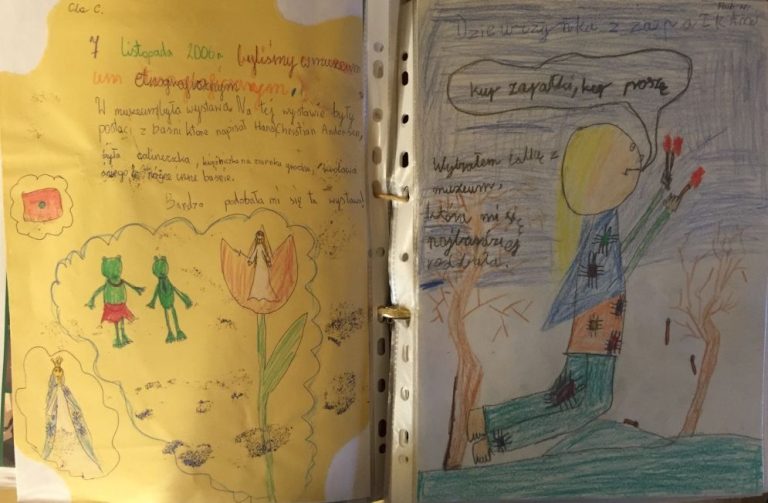 Ola C.
7 Listopada 2006 r byliśmy w muze
um etnograficznym.
W muzeum była wystawa. Na tej wystawie były
postaci z baśni które napisał Hans Christian Andersen,
była calineczka, księżniczka na ziarnku grochu, królowa
śniegu i różne inne baśnie.
Bardzo podobała mi się ta wystawa!
Dziewczynka z zapałkami
kup zapałki, kup proszę
Wybrałem lalkę z
muzeum,
która mi się
najbardziej